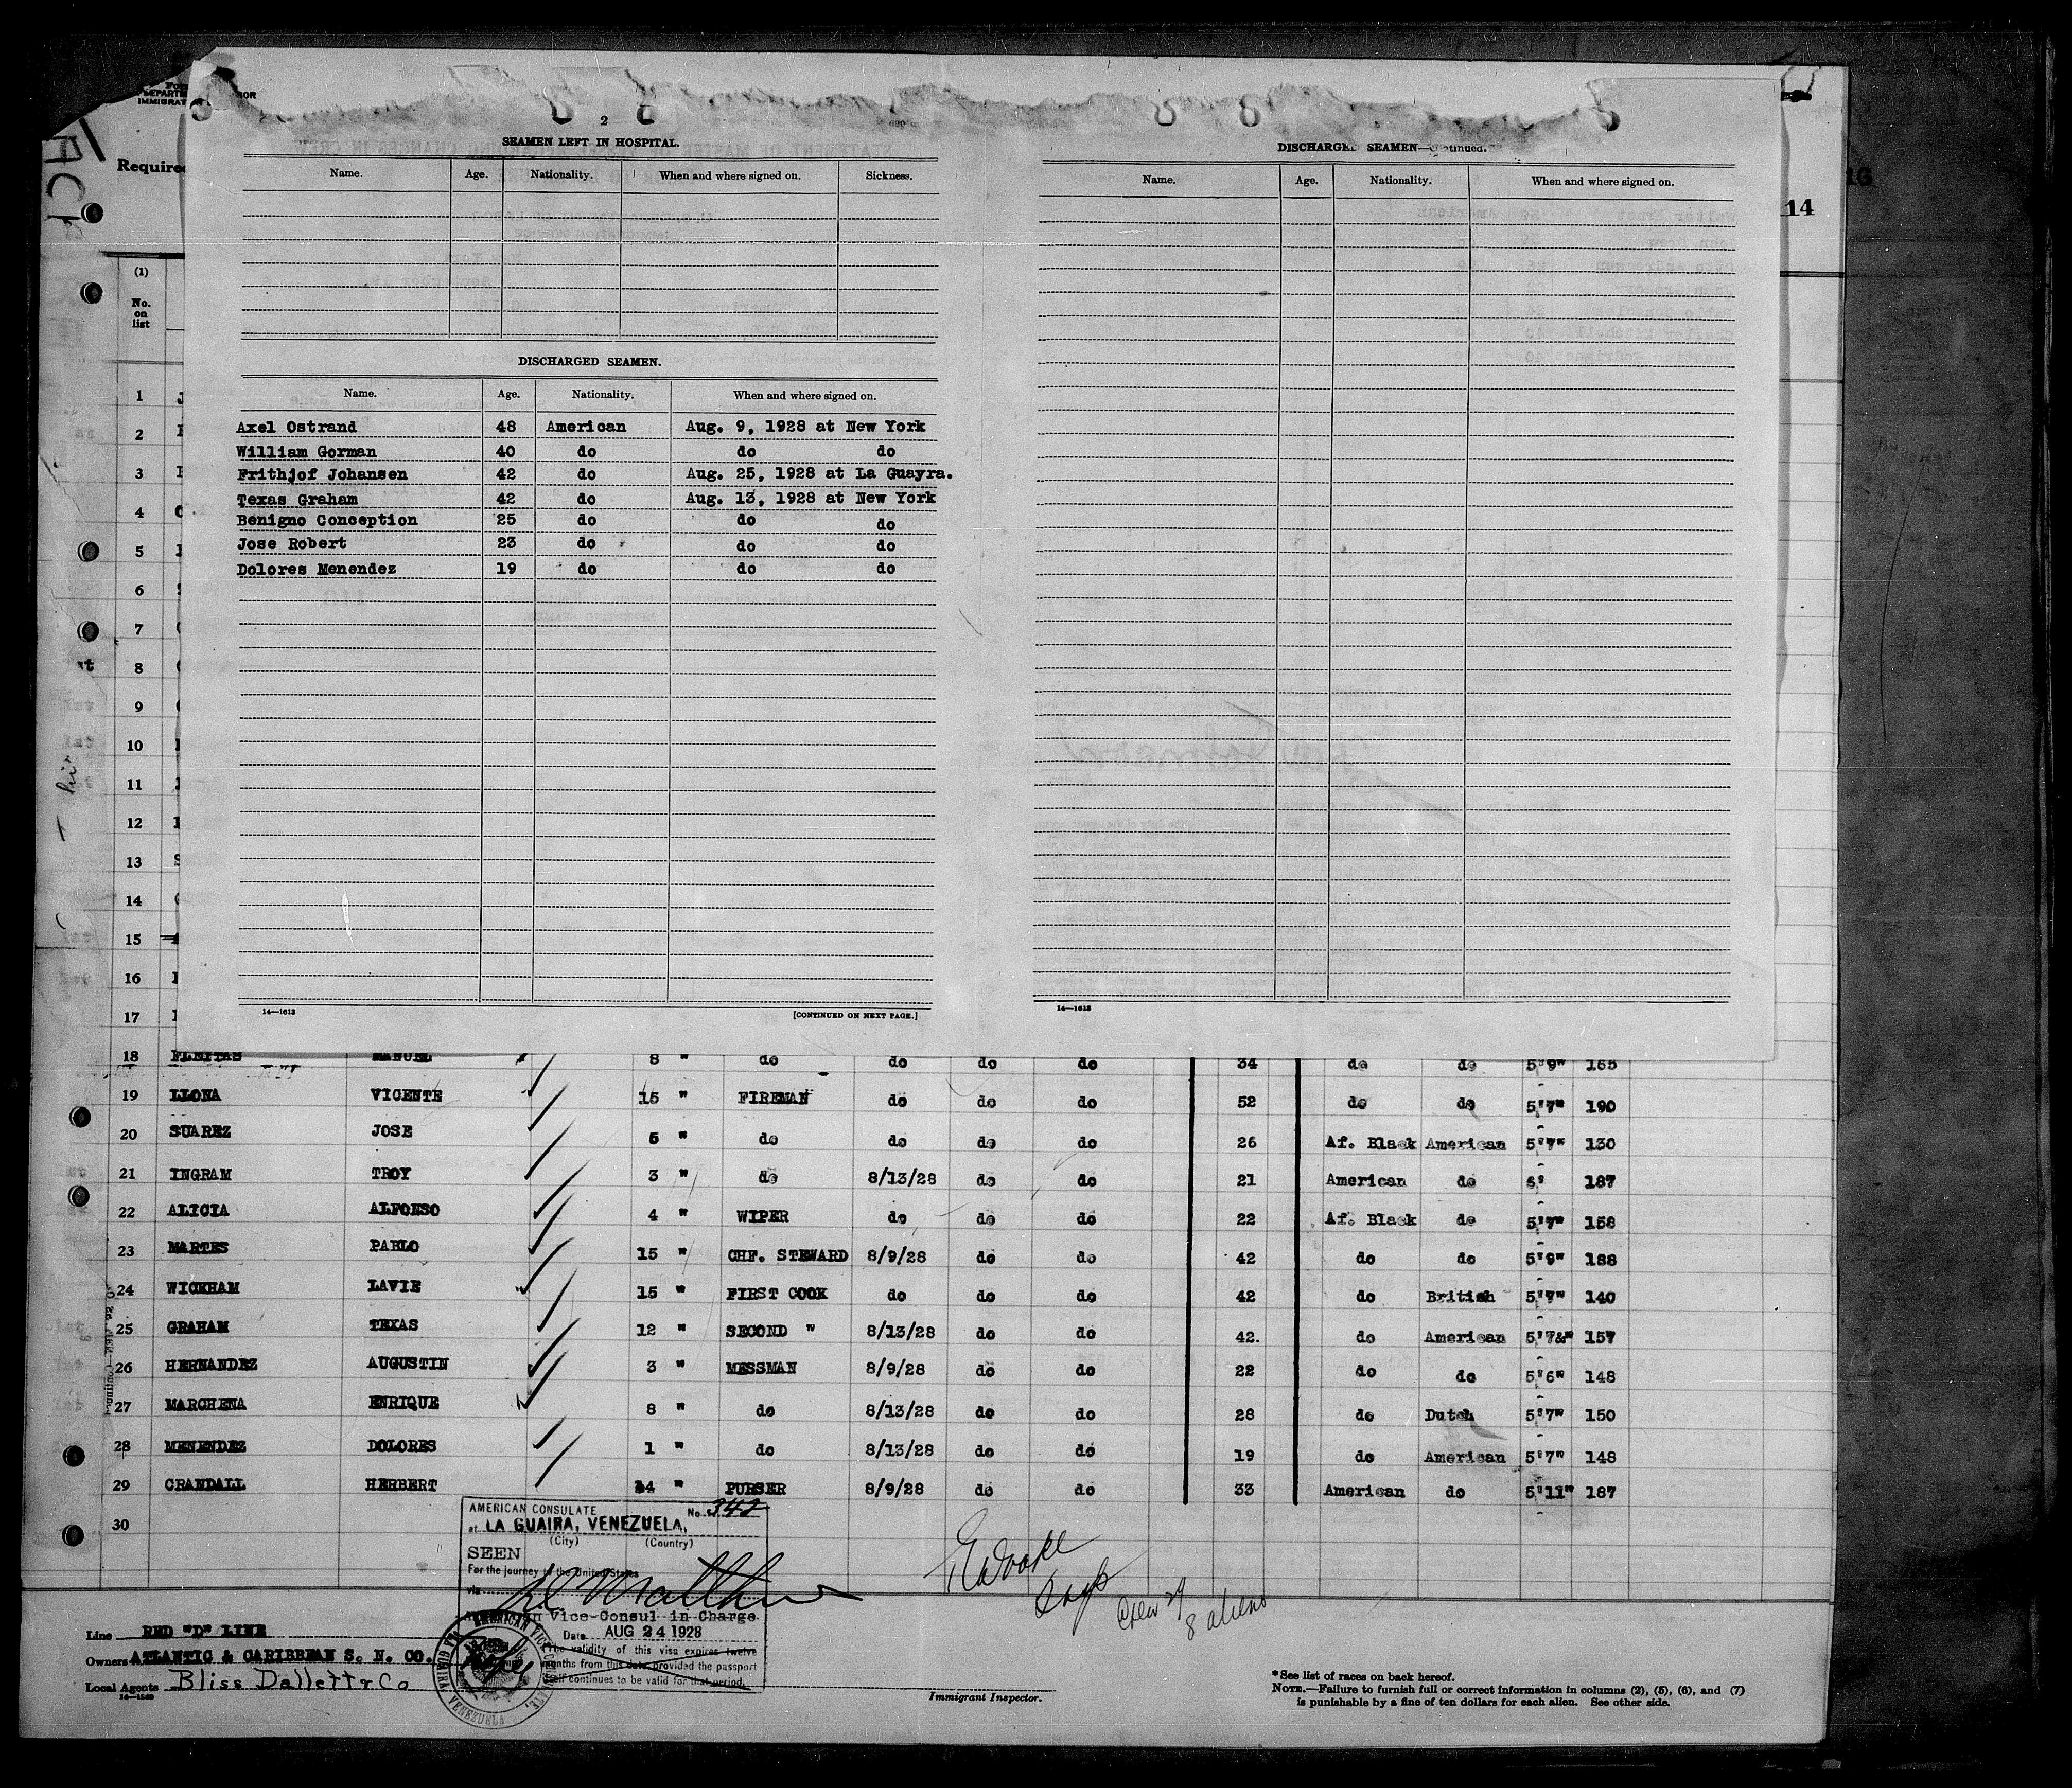 DEPARTM
IMMIGRAT
OR
Required
16
14
2
SEAMEN LEFT IN HOSPITAL.
Name. Age. Nationality. When and where signed on. Sickness.
DISCHARGED SEAMEN.
Name. Age. Nationality. When and where signed on.
Axel Ostrand 48 American Aug. 9, 1928 at New York
William Gorman 40 do do do
Frithjof Johansen 42 do Aug. 25, 1928 at La Guayra.
Texas Graham 42 do Aug. 13, 1928 at New York
Benigno Conception 25 do do do
Jose Robert 23 do do do
Dolores Menendez 19 do do do
14—1613 [CONTINUED ON NEXT PAGE.]
DISCHARGED SEAMEN—Continued.
Name. Age. Nationality. When and where signed on.
14—1613
(1)
No.
on
list
1
2
3
4
5
6
7
8
9
10
11
12
13
14
15
16
17
18 FLEITAS MANUEL 8 " do do do do 34 do do 5'9" 165
19 LLONA VICENTE 15 " FIREMAN do do do 52 do do 5'7" 190
20 SUAREZ JOSE 5 " do do do do 26 Af. Black American 5'7" 130
21 INGRAM TROY 3 " do 8/13/28 do do 21 American do 6' 187
22 ALICIA ALFONSO 4 " WIPER do do do 22 Af. Black do 5'7" 158
23 MARTES PABLO 15 " CHF. STEWARD 8/9/28 do do 42 do do 5'9" 188
24 WICKHAM LAVIE 15 " FIRST COOK do do do 42 do British 5'7" 140
25 GRAHAM TEXAS 12 " SECOND " 8/13/28 do do 42. do American 5'7&" 157
26 HERNANDEZ AUGUSTIN 3 " MESSMAN 8/9/28 do do 22 do do 5'6" 148
27 MARCHENA ENRIQUE 8 " do 8/13/28 do do 28 do Dutch 5'7" 150
28 MENENDEZ DOLORES 1 " do 8/13/28 do do 19 do American 5'7" 148
29 CRANDALL HERBERT 14 " PURSER 8/9/28 do do 33 American do 5'11" 187
30
AMERICAN CONSULATE No. 342
at LA GUAIRA, VENEZUELA,
(City) (Country)
SEEN
For the journey to the United States
via
American Vice-Consul in Charge
Date AUG 24 1928
The validity of this visa expires twelve
months from this date, provided the passport
itself continues to be valid for that period.
AMERICAN VICE CONSULATE, LA GUAIRA, VENEZUELA
Crew 29
8 aliens
Line RED "D" LINE
Owners ATLANTIC & CARIBBEAN S. N. CO.
Local Agents Bliss Dallett & Co
14—1240
Immigrant Inspector.
*See list of races on back hereof.
NOTE.—Failure to furnish full or correct information in columns (2), (5), (6), and (7)
is punishable by a fine of ten dollars for each alien. See other side.